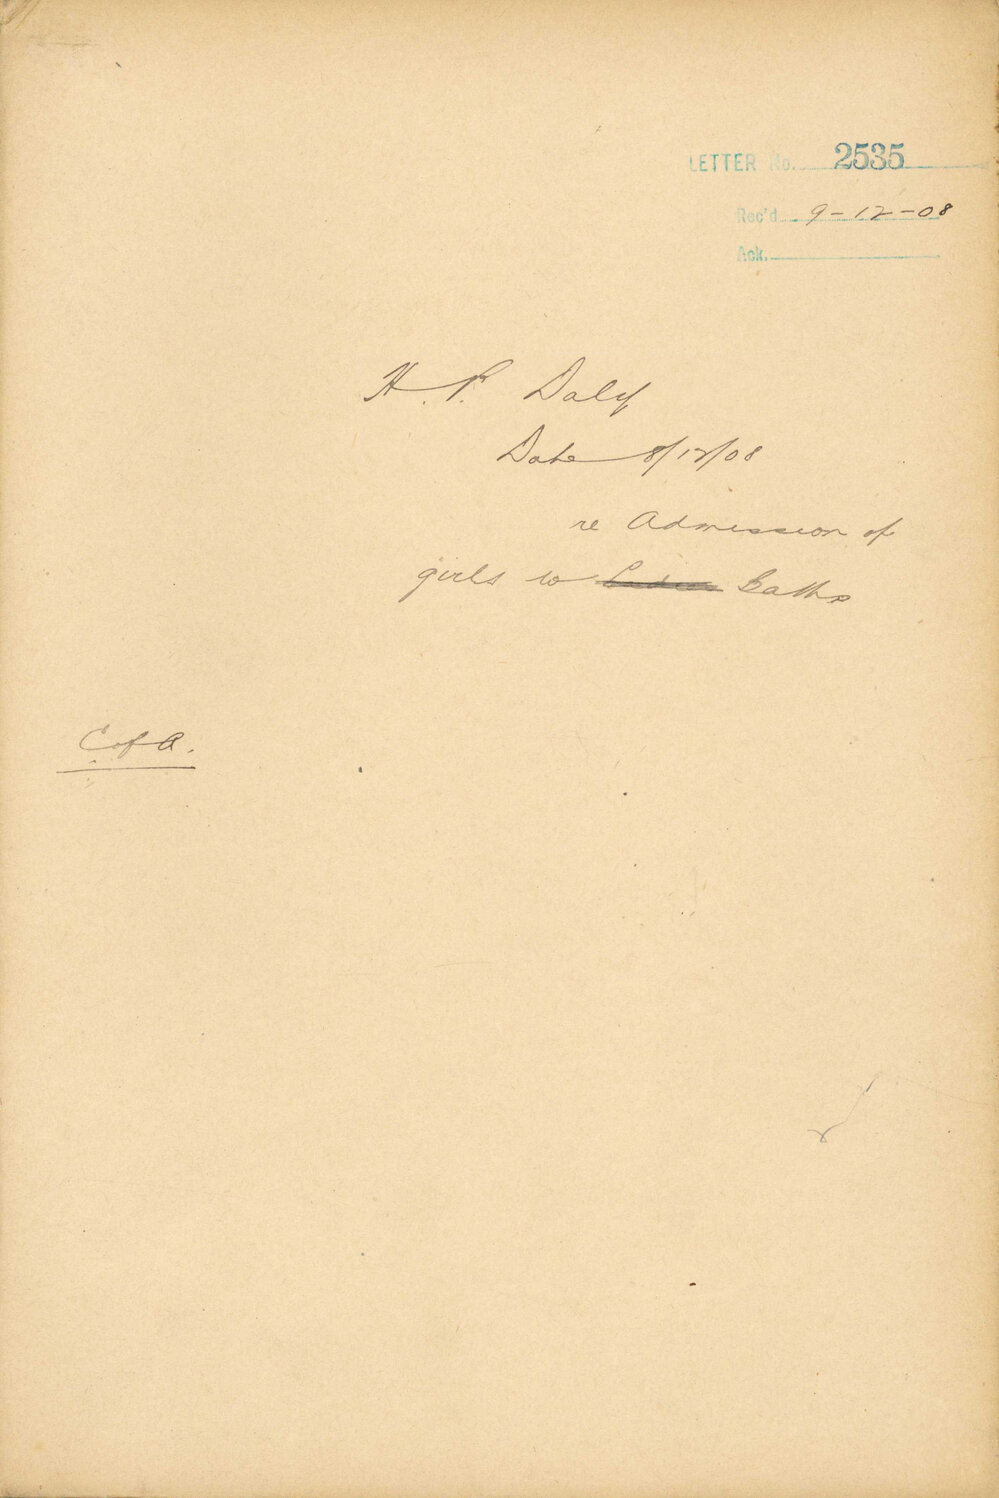 LETTER No. 2535
Rec'd 9-12-08
Ack.
H. P. Daly
Date 8/12/08
re Admission of
girls to Baths
C of A.